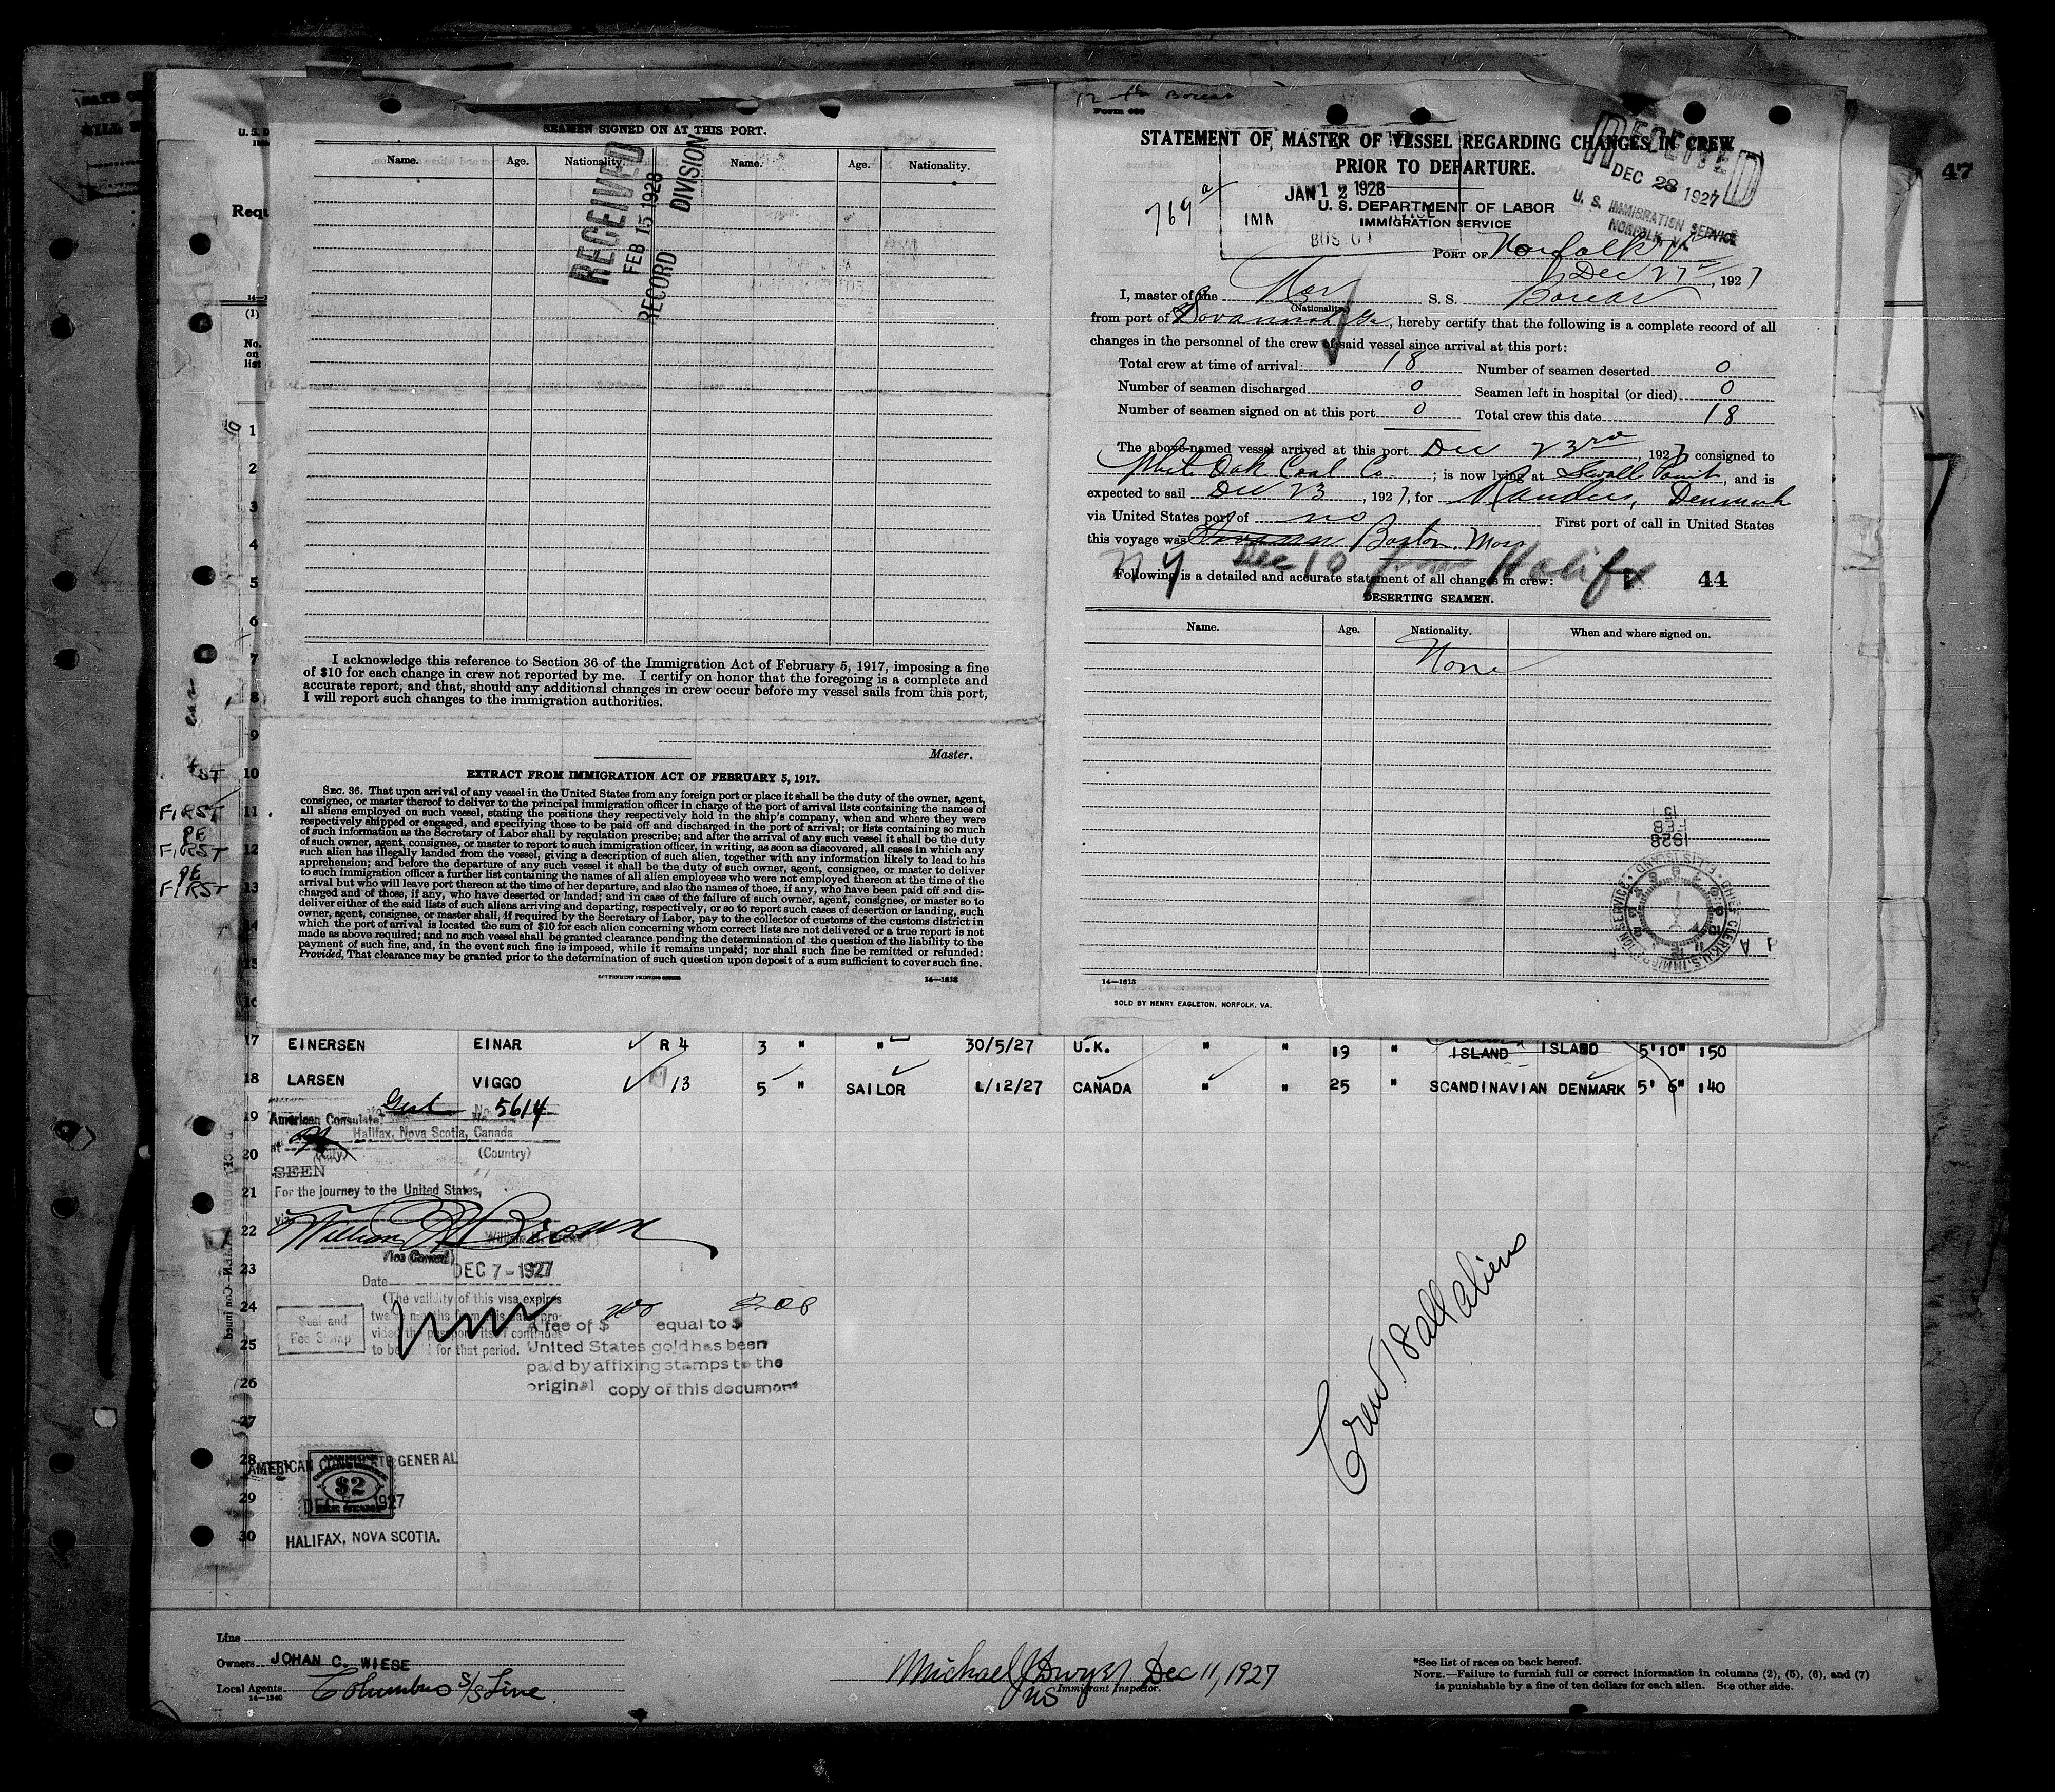 47
U. S. D
Requ
(1)
No.
on
list
1
2
3
4
5
6
7
8
9
10
11
12
13
14
15
16
ST
FIRST
PE
FIRST
PE
FIRST
SEAMEN SIGNED ON AT THIS PORT.
Name. Age. Nationality. Name. Age. Nationality.
RECEIVED
FEB 15 1928
RECORD DIVISION
I acknowledge this reference to Section 36 of the Immigration Act of February 5, 1917, imposing a fine
of $10 for each change in crew not reported by me. I certify on honor that the foregoing is a complete and
accurate report; and that, should any additional changes in crew occur before my vessel sails from this port,
I will report such changes to the immigration authorities.
Master.
EXTRACT FROM IMMIGRATION ACT OF FEBRUARY 5, 1917.
SEC. 36. That upon arrival of any vessel in the United States from any foreign port or place it shall be the duty of the owner, agent,
consignee, or master thereof to deliver to the principal immigration officer in charge of the port of arrival lists containing the names of
all aliens employed on such vessel, stating the positions they respectively hold in the ship's company, when and where they were
respectively shipped or engaged, and specifying those to be paid off and discharged in the port of arrival; or lists containing so much
of such information as the Secretary of Labor shall by regulation prescribe; and after the arrival of any such vessel it shall be the duty
of such owner, agent, consignee, or master to report to such immigration officer, in writing, as soon as discovered, all cases in which any
such alien has illegally landed from the vessel, giving a description of such alien, together with any information likely to lead to his
apprehension; and before the departure of any such vessel it shall be the duty of such owner, agent, consignee, or master to deliver
to such immigration officer a further list containing the names of all alien employees who were not employed thereon at the time of the
arrival but who will leave port thereon at the time of her departure, and also the names of those, if any, who have been paid off and dis-
charged and of those, if any, who have deserted or landed; and in case of the failure of such owner, agent, consignee, or master so to
deliver either of the said lists of such aliens arriving and departing, respectively, or so to report such cases of desertion or landing, such
owner, agent, consignee, or master shall, if required by the Secretary of Labor, pay to the collector of customs of the customs district in
which the port of arrival is located the sum of $10 for each alien concerning whom correct lists are not delivered or a true report is not
made as above required; and no such vessel shall be granted clearance pending the determination of the question of the liability to the
payment of such fine, and, in the event such fine is imposed, while it remains unpaid; nor shall such fine be remitted or refunded:
Provided, That clearance may be granted prior to the determination of such question upon deposit of a sum sufficient to cover such fine.
GOVERNMENT PRINTING OFFICE 14—1613
Boreas
Form 689
STATEMENT OF MASTER OF VESSEL REGARDING CHANGES IN CREW
PRIOR TO DEPARTURE.
RECEIVED
DEC 28 1927
U. S. IMMIGRATION SERVICE
NORFOLK, VA.
769
JAN 12 1928
U. S. DEPARTMENT OF LABOR
IMMIGRATION SERVICE
PORT OF Norfolk Va
Dec 27, 1927
I, master of the Nor S. S. Boreas
(Nationality)
from port of Savannah Ga, hereby certify that the following is a complete record of all
changes in the personnel of the crew of said vessel since arrival at this port:
Total crew at time of arrival: 18 Number of seamen deserted 0
Number of seamen discharged 0 Seamen left in hospital (or died) 0
Number of seamen signed on at this port 0 Total crew this date 18
The above-named vessel arrived at this port Dec 23rd, 1927, consigned to
White Oak Coal Co.; is now lying at Sewalls Point, and is
expected to sail Dec 23, 1927, for Randers, Denmark
via United States port of no First port of call in United States
this voyage was Savannah Boston, Mass
NY Dec 10 from Halifx
Following is a detailed and accurate statement of all changes in crew: 44
DESERTING SEAMEN.
Name. Age. Nationality. When and where signed on.
None
1928
FEB
15
CHIEF CLERK U. S. IMMIGRATION SERVICE ELLIS ISLAND
14—1613
SOLD BY HENRY EAGLETON, NORFOLK, VA.
17 EINERSEN EINAR R 4 3 " " 30/5/27 U.K. " " 19 " ISLAND ISLAND 5'10" 150
18 LARSEN VIGGO 13 5 " SAILOR 1/12/27 CANADA " " 25 " SCANDINAVIAN DENMARK 5' 6" 140
19 American Consulate Genl No. 5614
at Halifax, Nova Scotia, Canada
20 (City) (Country)
SEEN
21 For the journey to the United States,
22 via William R. Brown
Vice Consul
23 Date DEC 7 - 1927
24 (The validity of this visa expires
Seal and
Fee Stamp
twelve months from this date pro-
vided the passport itself continues
to be valid for that period.
A fee of $ 2.00 equal to $ 2.00
25 United States gold has been
paid by affixing stamps to the
26 original copy of this document
27
28 AMERICAN CONSULATE GENERAL
$2
29 DEC 7 1927
FEE STAMP
30 HALIFAX, NOVA SCOTIA.
Crew 18 all aliens
Line
Owners JOHAN C. WIESE
Local Agents Columbus S/S Line.
14—1240
Michael J Dwyer Dec 11, 1927
Immigrant Inspector.
*See list of races on back hereof.
NOTE.—Failure to furnish full or correct information in columns (2), (5), (6), and (7)
is punishable by a fine of ten dollars for each alien. See other side.